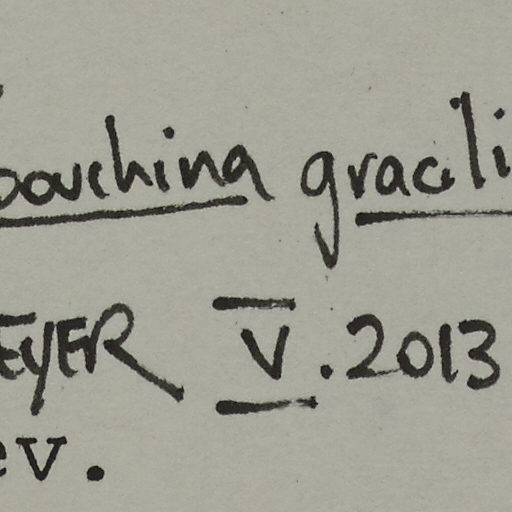 bouchina gracili
EYER V.2013
ev.